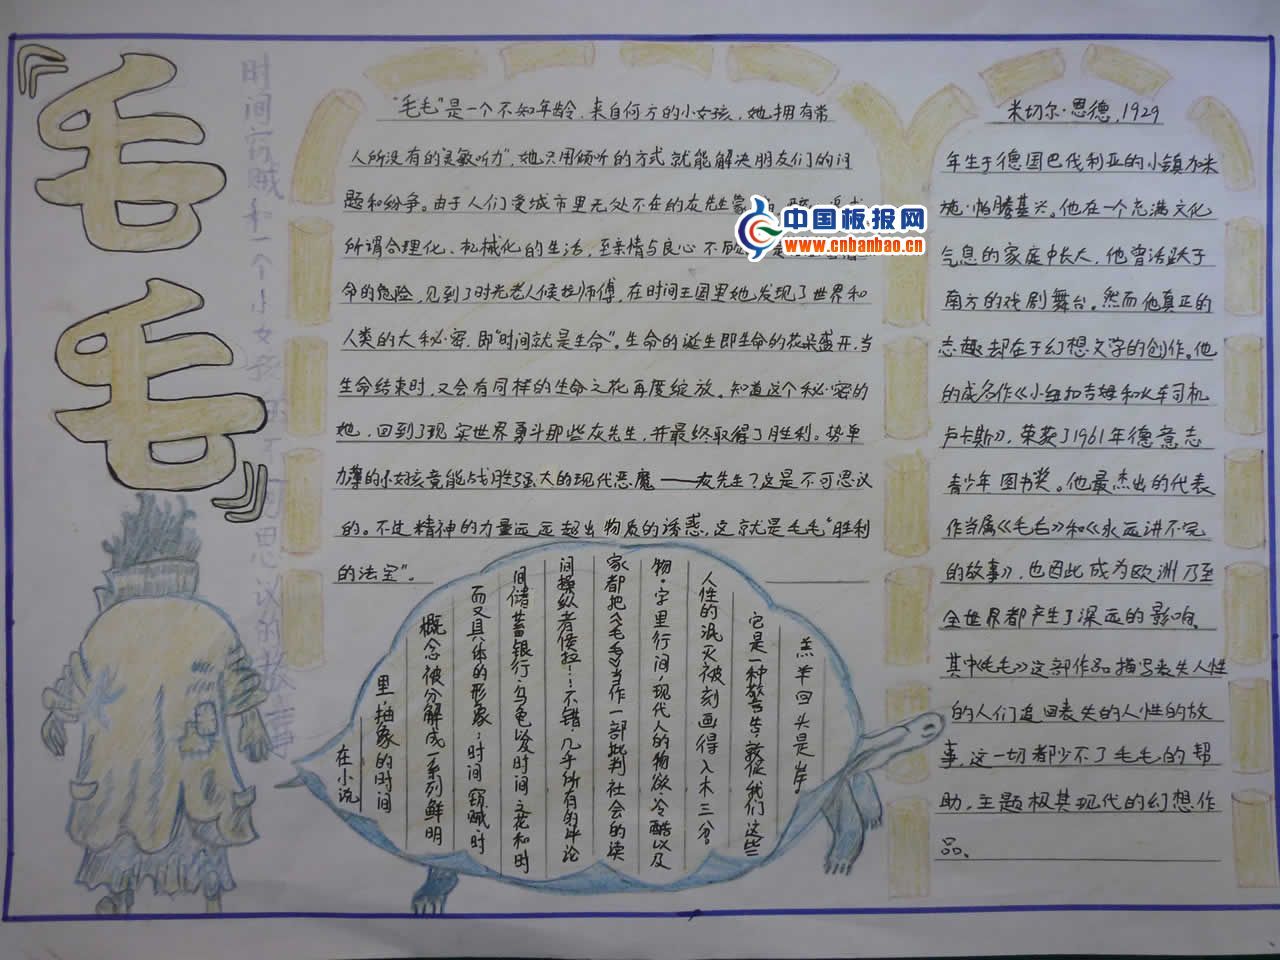 《毛毛》
时间窃贼和一个小女孩的不可思议的故事
“毛毛”是一个不知年龄,来自何方的小女孩,她拥有常
人所没有的“灵敏听力”,她只用倾听的方式就能解决朋友们的问
题和纷争。由于人们受城市里无处不在的灰先生蒙
所谓合理化、机械化的生活,至亲情与良心不顾
命的危险,见到了时光老人侯拉师傅,在时间王国里她发现了世界和
人类的大秘密,即“时间就是生命”。生命的诞生即生命的花朵盛开,当
生命结束时,又会有同样的生命之花再度绽放。知道这个秘密的
她,回到了现实世界勇斗那些灰先生,并最终取得了胜利。势单
力薄的小女孩竟能战胜强大的现代恶魔——灰先生?这是不可思议
的。不过精神的力量远远超出物质的诱惑,这就是毛毛“胜利
的法宝”。
中国板报网
www.cnbanbao.cn
米切尔·恩德,1929
年生于德国巴伐利亚的小镇加米
施·帕滕基兴。他在一个充满文化
气息的家庭中长大,他曾活跃于
南方的戏剧舞台。然而他真正的
志趣却在于幻想文学的创作。他
的成名作《小纽扣吉姆和火车司机
卢卡斯》,荣获了1961年德意志
青少年图书奖。他最杰出的代表
作当属《毛毛》和《永远讲不完
的故事》,也因此成为欧洲乃至
全世界都产生了深远的影响。
其中《毛毛》这部作品描写丧失人性
的人们追回丧失的人性的故
事,这一切都少不了毛毛的帮
助,主题极其现代的幻想作
品。
在小说
里,抽象的时间
概念被分解成一系列鲜明
而又具体的形象;时间窃贼,时
间储蓄银行,乌龟以及时间之花和时
间操纵者侯拉……不错,几乎所有的评论
家都把《毛毛》当作一部批判社会的读
物,字里行间,现代人的物欲、冷酷以及
人性的泯灭被刻画得入木三分。
它是一种警告,敦促我们这些
羔羊回头是岸